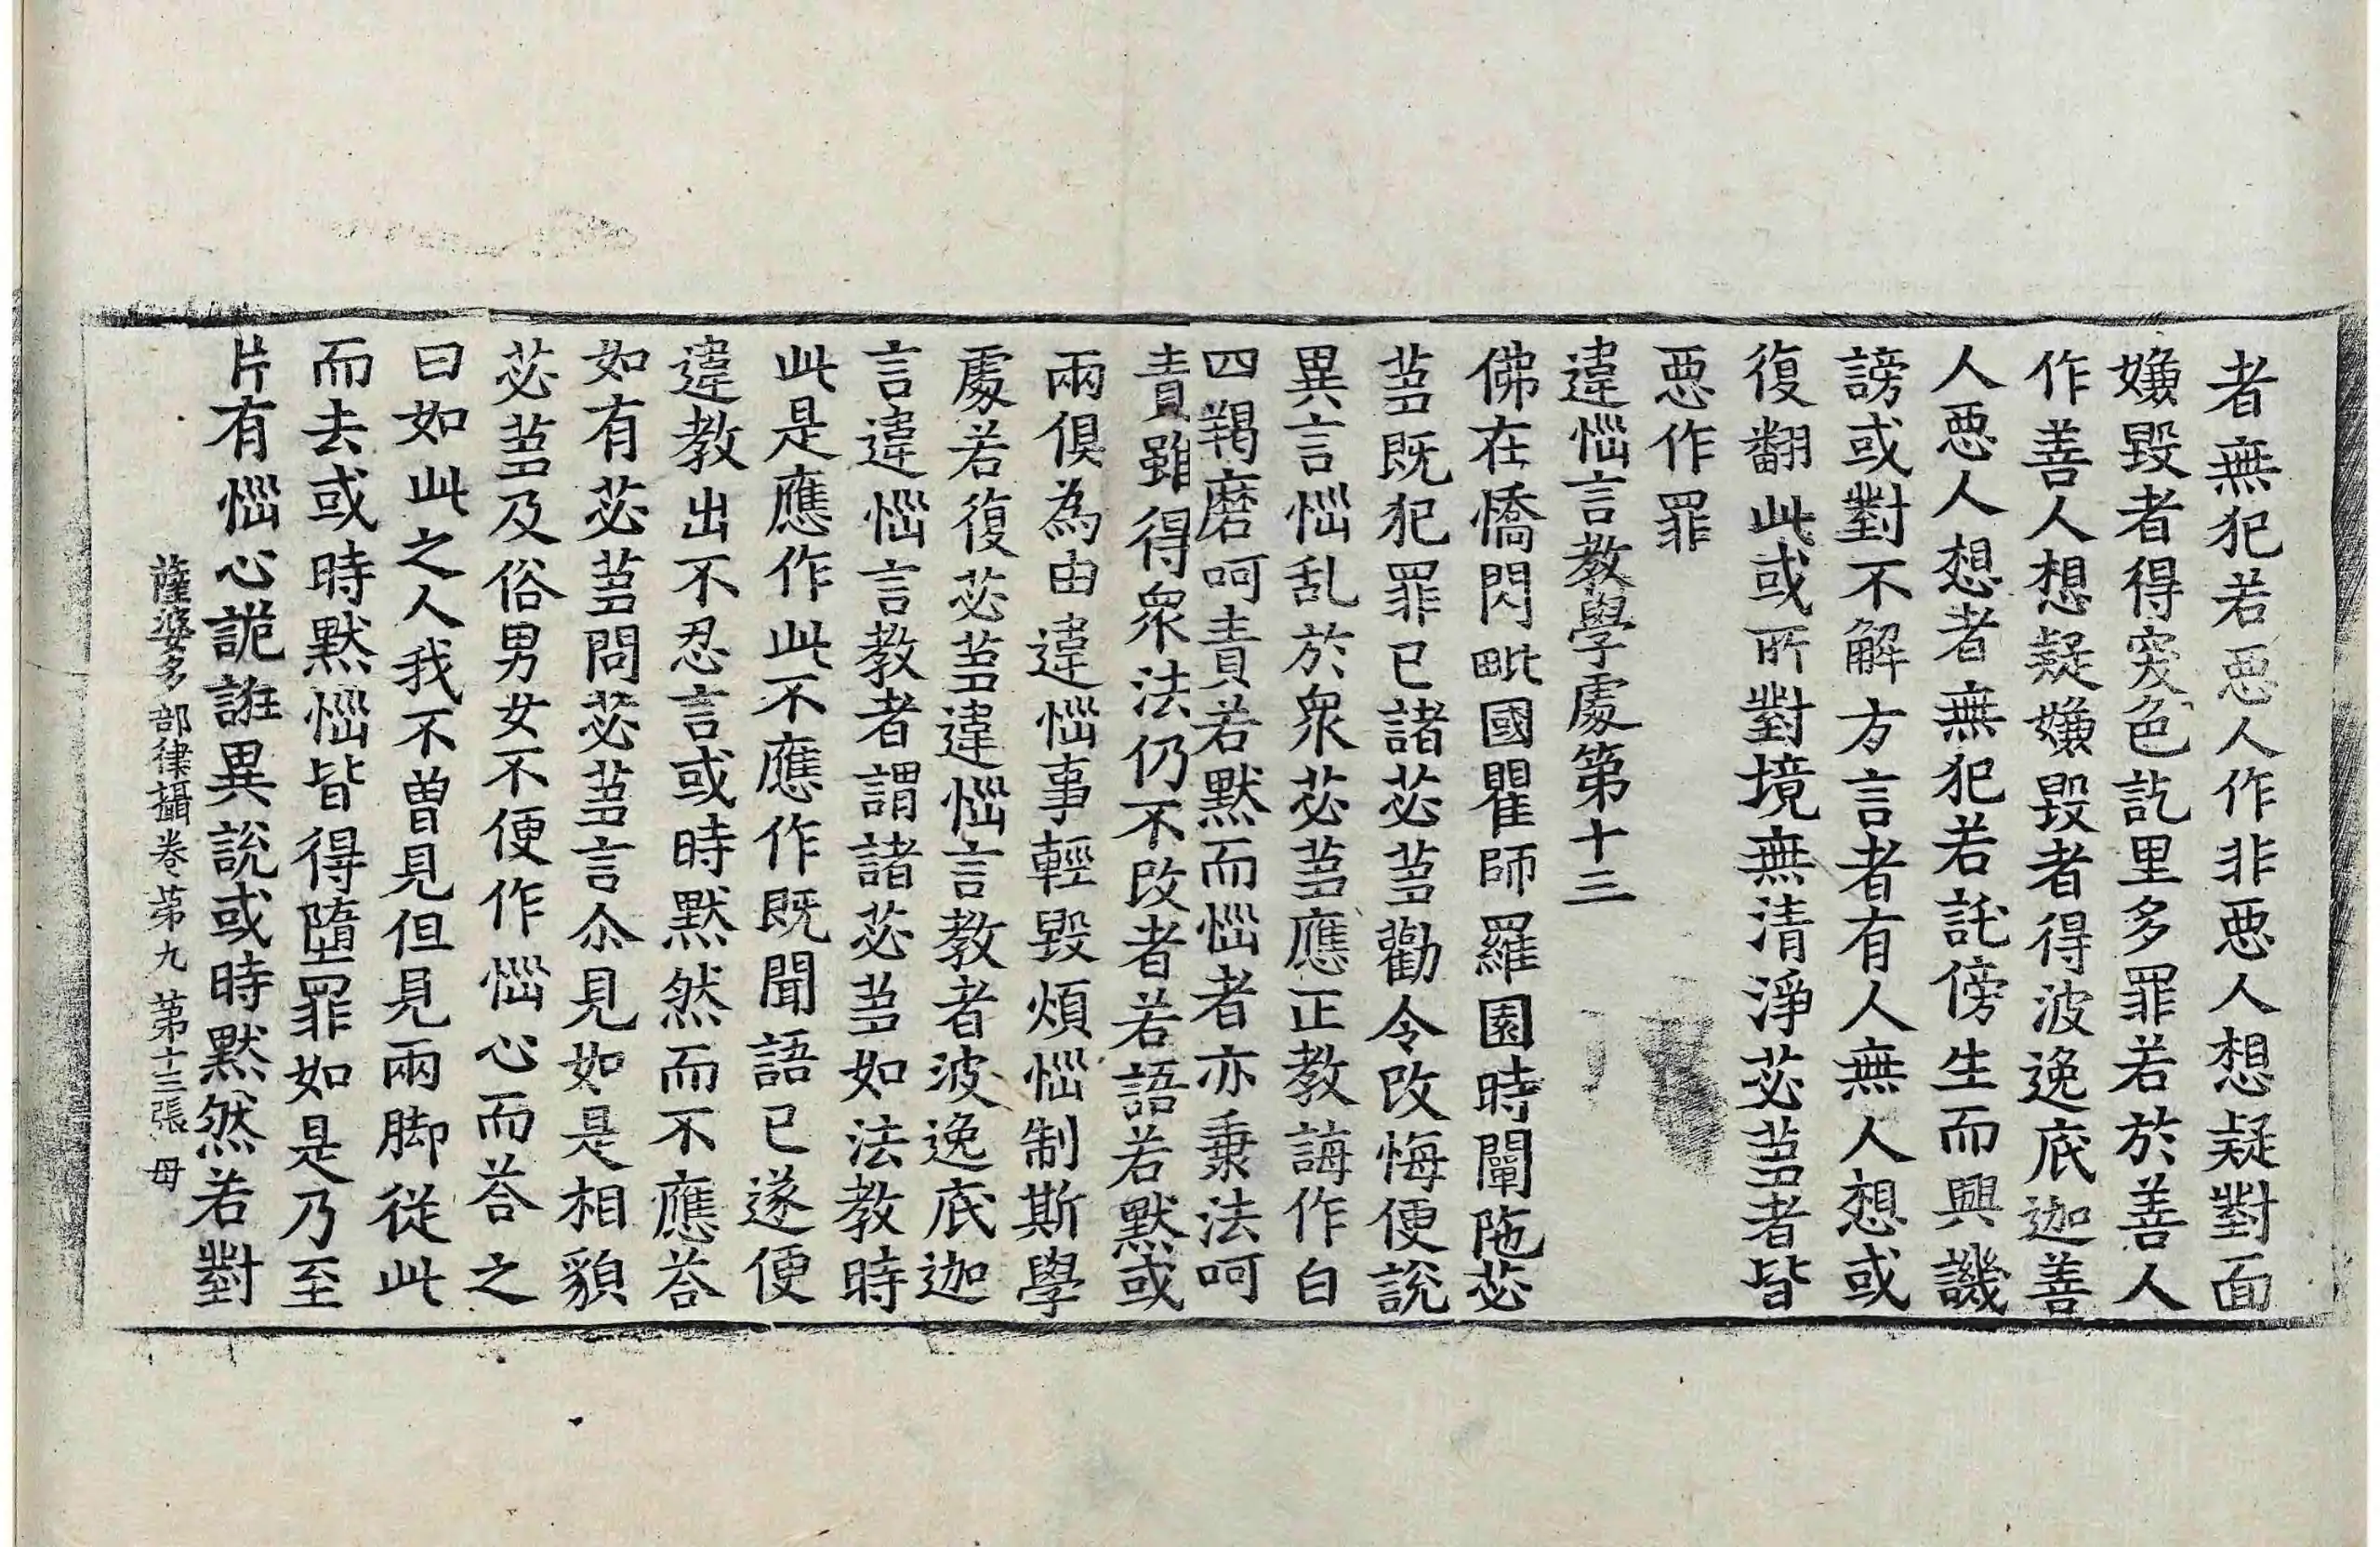 者無犯若悪人作非悪人想疑對面
嫌毀者得突色訖里多罪若於善人
作善人想疑嫌毀者得波逸底迦善
人悪人想者無犯若託傍生而興譏
謗或對不解方言者有人無人想或
復翻此或所對境無清淨苾蒭者皆
悪作罪
違惱言教學處第十三
佛在憍閃毗國瞿師羅園時闡陁苾
蒭既犯罪已諸苾蒭勸令改悔便說
異言惱乱於衆苾蒭應正教誨作白
四羯磨呵責若默而惱者亦秉法呵
責雖得衆法仍不改者若語若默或
兩俱為由違惱事輕毀煩惱制斯學
處若復苾蒭違惱言教者波逸底迦
言違惱言教者謂諸苾蒭如法教時
此是應作此不應作既聞語已遂便
違教出不忍言或時默然而不應荅
如有苾蒭問苾蒭言尒見如是相貌
苾蒭及俗男女不便作惱心而荅之
曰如此之人我不曾見但見兩脚從此
而去或時默惱皆得墮罪如是乃至
片有惱心詭誑異說或時默然若對
薩婆多部律攝卷苐九 苐十三張 母